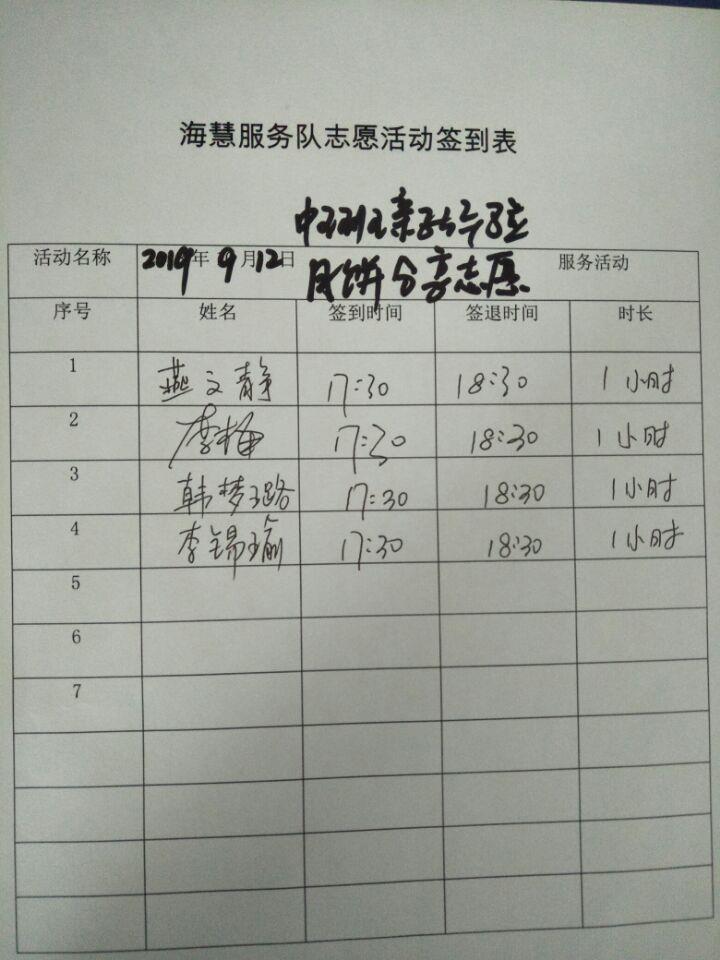 海慧服务队志愿活动签到表
活动名称 2019年9月12日 月饼分享志愿 服务活动
序号 姓名 签到时间 签退时间 时长
1 燕文静 17:30 18:30 1小时
2 李梅 17:30 18:30 1小时
3 韩梦璐 17:30 18:30 1小时
4 李锡瑜 17:30 18:30 1小时
5
6
7